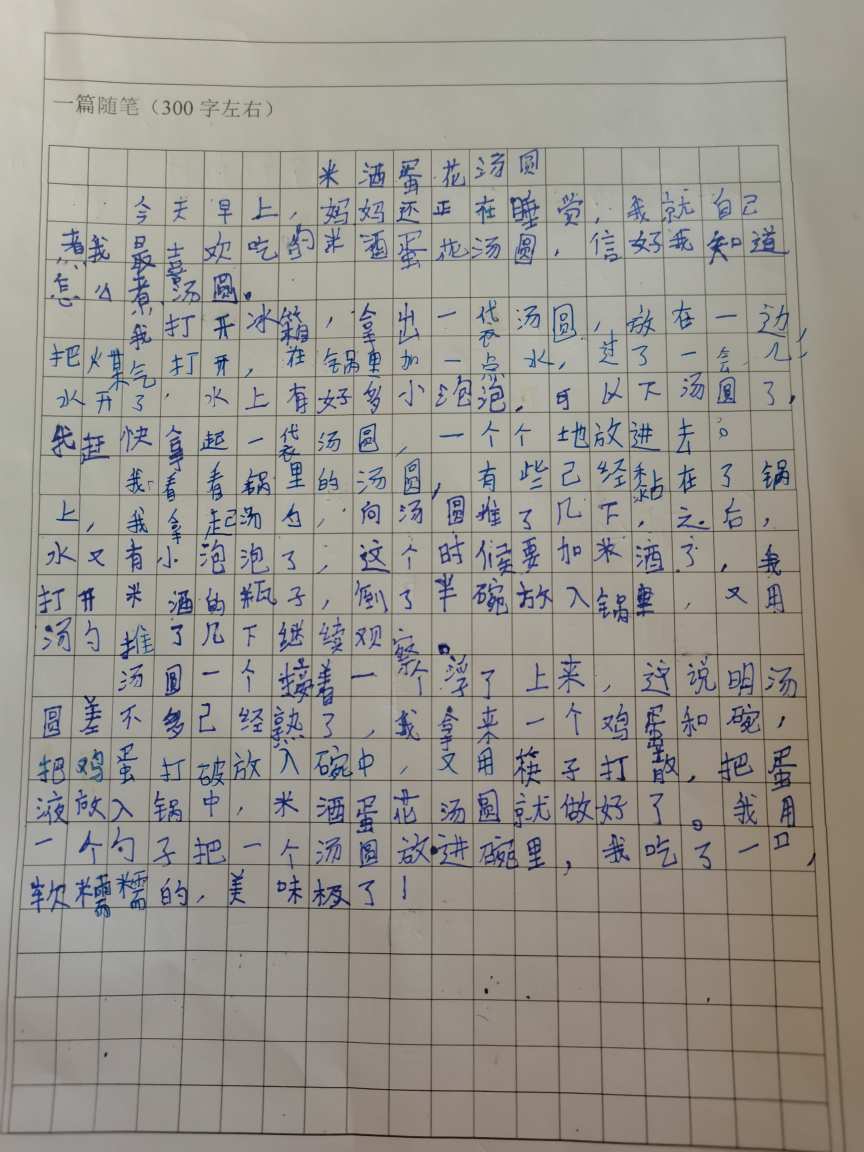 一篇随笔（300字左右）
米酒蛋花汤圆
今天早上，妈妈还正在睡觉，我就自己
煮我最喜欢吃的米酒蛋花汤圆，信好我知道
怎么煮汤圆。
我打开冰箱，拿出一袋汤圆，放在一边，
把煤气打开，在锅里加一点水，过了一会儿，
水开了，水上有好多小泡泡，可以下汤圆了，
我赶快拿起一袋汤圆，一个个地放进去。
我看看锅里的汤圆，有些已经黏在了锅
上，我拿起汤勺，向汤圆推了几下，之后，
水又有小泡泡了，这个时候要加米酒了，我
打开米酒的瓶子，倒了半碗放入锅里，又用
汤勺推了几下继续观察。
汤圆一个接着一个浮了上来，这说明汤
圆差不多已经熟了，我拿来一个鸡蛋和碗，
把鸡蛋打破放入碗中，又用筷子打散，把蛋
液放入锅中，米酒蛋花汤圆就做好了。我用
一个勺子把一个汤圆放进碗里，我吃了一口，
软糯糯的，美味极了！